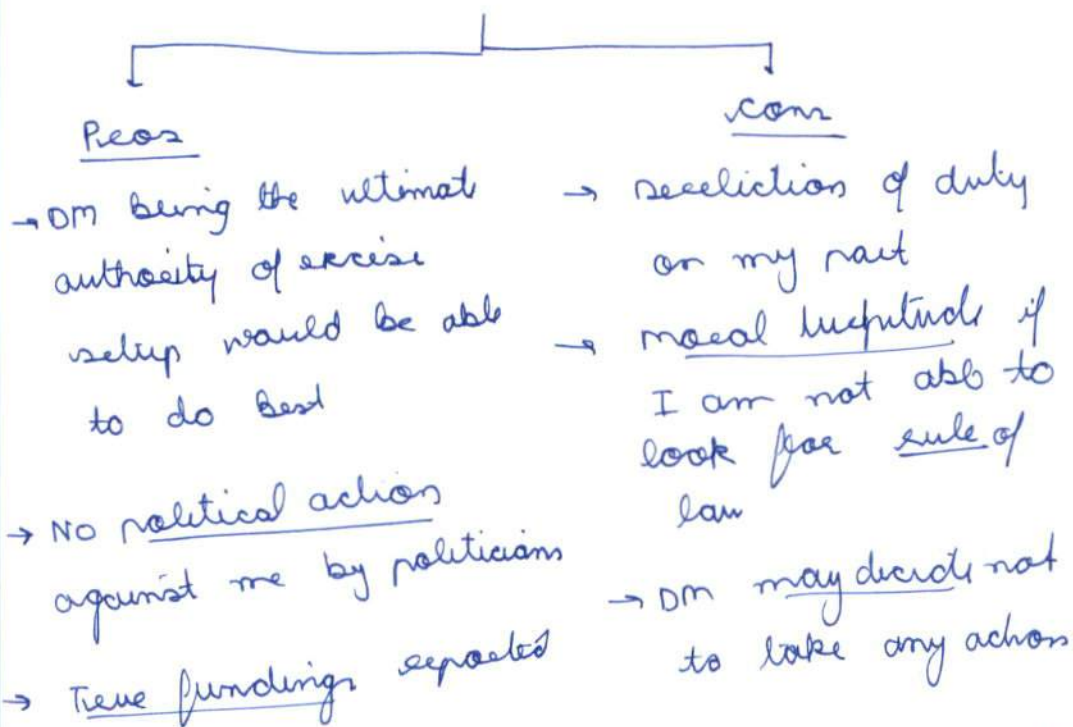 Pros
→ DM being the ultimat
authority of excise
setup would be able
to do best
→ No political action
against me by politicians
→ True fundings reported
cons
→ dereliction of duty
on my part
→ moral turpitude if
I am not able to
look for rule of
law
→ DM may decide not
to take any action